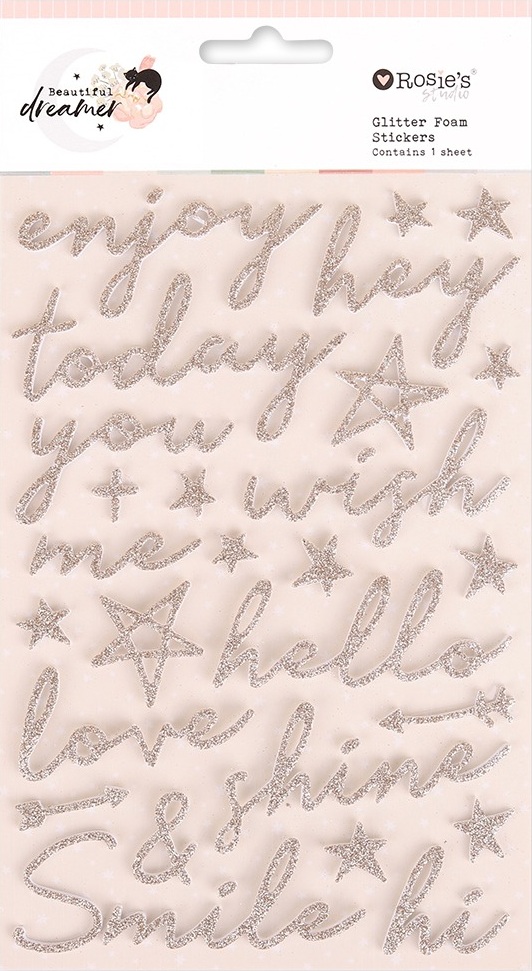 Beautiful
dreamer
Rosie's®
studio
Glitter Foam
Stickers
Contains 1 sheet
enjoy
hey
today
you
wish
me
hello
love
shine
&
Smile hi